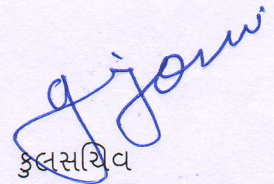 કુલસચિવ